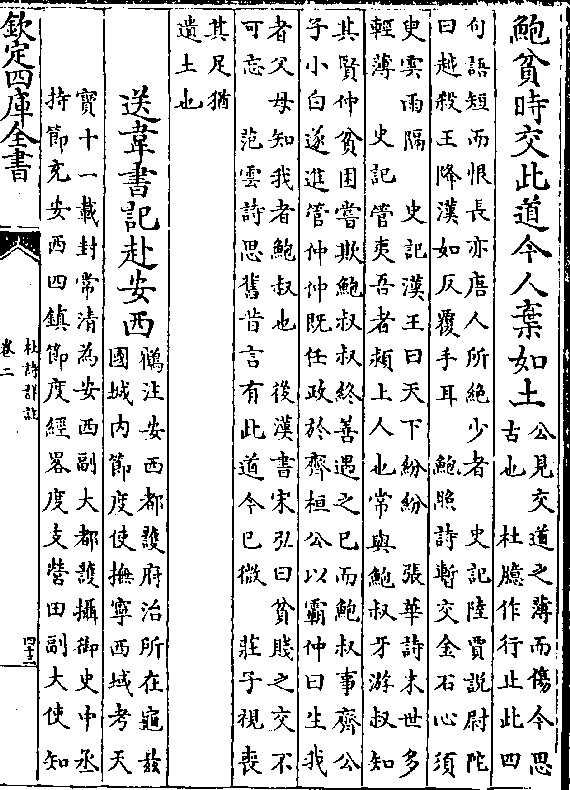 鮑貧時交此道今人棄如土
公見交道之薄而傷今思
古也　杜臆作行止此四
句語短而恨長亦唐人所絶少者　史記陸賈説尉陀
曰越殺王降漢如反覆手耳　鮑照詩暫交金石心須
臾雲雨隔　史記漢王曰天下紛紛　張華詩末世多
輕薄　史記管夷吾者潁上人也常與鮑叔牙游叔知
其賢仲貧困嘗欺鮑叔叔終善遇之已而鮑叔事齊公
子小白遂進管仲仲既任政於齊桓公以霸仲曰生我
者父母知我者鮑叔也　後漢書宋弘曰貧賤之交不
可忘　范雲詩思舊昔言有此道今已微　莊子視喪
其足猶
遺土也
送韋書記赴安西
鶴注安西都護府治所在龜兹
國城内節度使撫寧西域考天
寶十一載封常清為安西副大都護攝御史中丞
持節充安西四鎮節度經畧度支營田副大使知
欽定四庫全書
杜詩詳註
卷二
四十三